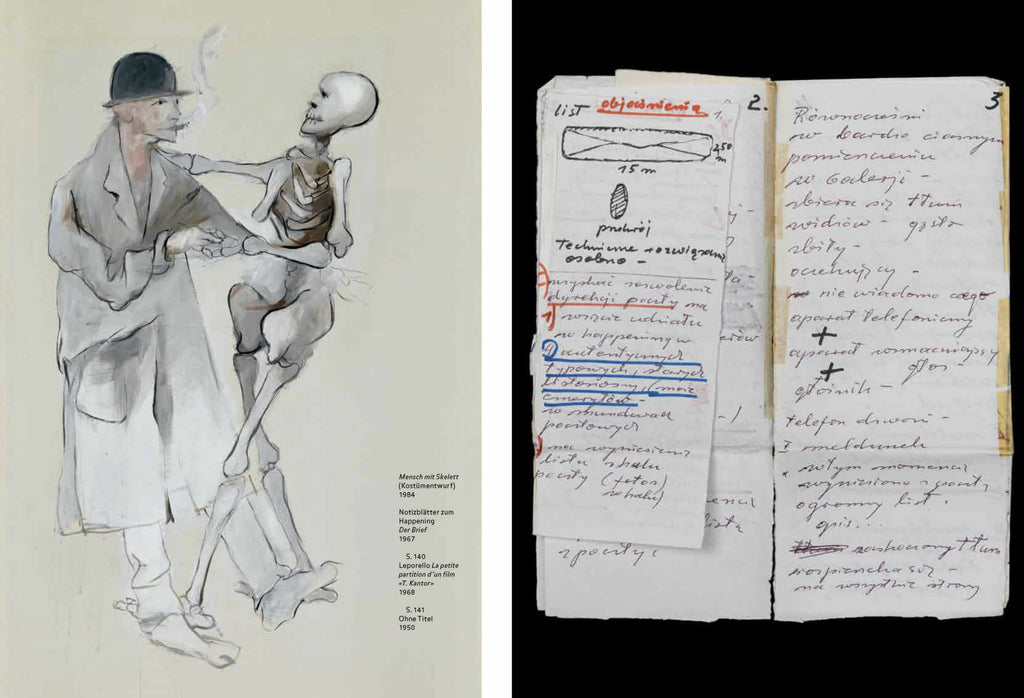 Mensch mit Skelett
(Kostümentwurf)
1984
Notizblätter zum
Happening
Der Brief
1967
S. 140
Leporello La petite
partition d'un film
«T. Kantor»
1968
S. 141
Ohne Titel
1950
list objaśnienia 1.
250 m
15 m
przekrój
Techniczne rozwiązanie
osobno -
uzyskać zezwolenie
dyrekcji poczty na
wzięcie udziału
w happeningu
autentycznych
typowych, starych
listonoszy (może
emerytów -
w mundurach
pocztowych
na wyniesienie
listu z hallu
poczty (fotos)
z hallu)
z poczty
2.
3
Równocześnie
w bardzo ciasnym
pomieszczeniu
w Galerji -
zbiera się tłum
widzów - gęsto
zbity -
oczekujący -
nie wiadomo czego
aparat telefoniczny
+
aparat wzmacniający
+ głos -
głośnik -
telefon dzwoni -
I meldunek
w tym momencie
wyniesiono z poczty
ogromny list.
opis...
zaskoczony tłum
na wszystkie strony